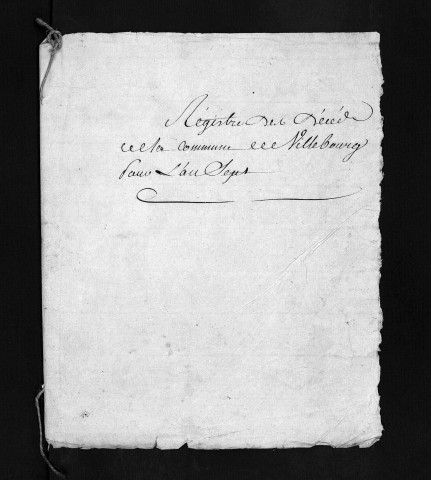 Régistre des Décéds
de la commune de Villebourg
Pour L'an Sept